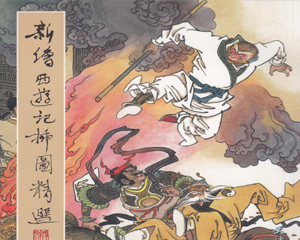 新繪西遊記插圖精選